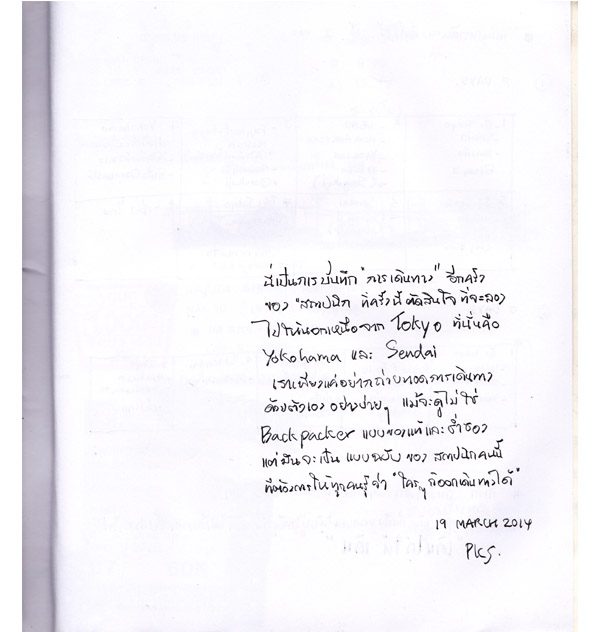 นี่เป็นการบันทึก "การเดินทาง" อีกครั้ง
ของ "สถาปนิก ที่ครั้งนี้ตัดสินใจที่จะลอง
ไปให้นอกเหนือจาก Tokyo ที่นั่นคือ
Yokohama และ Sendai
เราเพียงแค่อยากถ่ายทอดการเดินทาง
ด้วยตัวเอง อย่างง่ายๆ แม้จะดูไม่ใช่
Backpacker แบบของแท้และช่ำชอง
แต่มันจะเป็น แบบฉบับ ของ สถาปนิกคนนี้
ที่ต้องการให้ทุกคนรู้ว่า "ใครๆ ก็ออกเดินทางได้"
19 MARCH 2014
PKS.